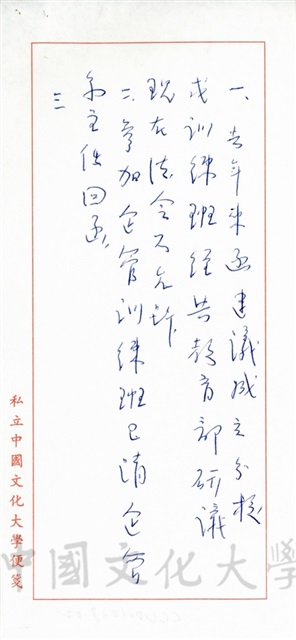 一、去年來函建議成立分校
或訓練班經與教育部研議
現在法令不允許
二、參加企管訓練班已請企管
系主任回函
三
私立中國文化大學便箋
中國文化大學